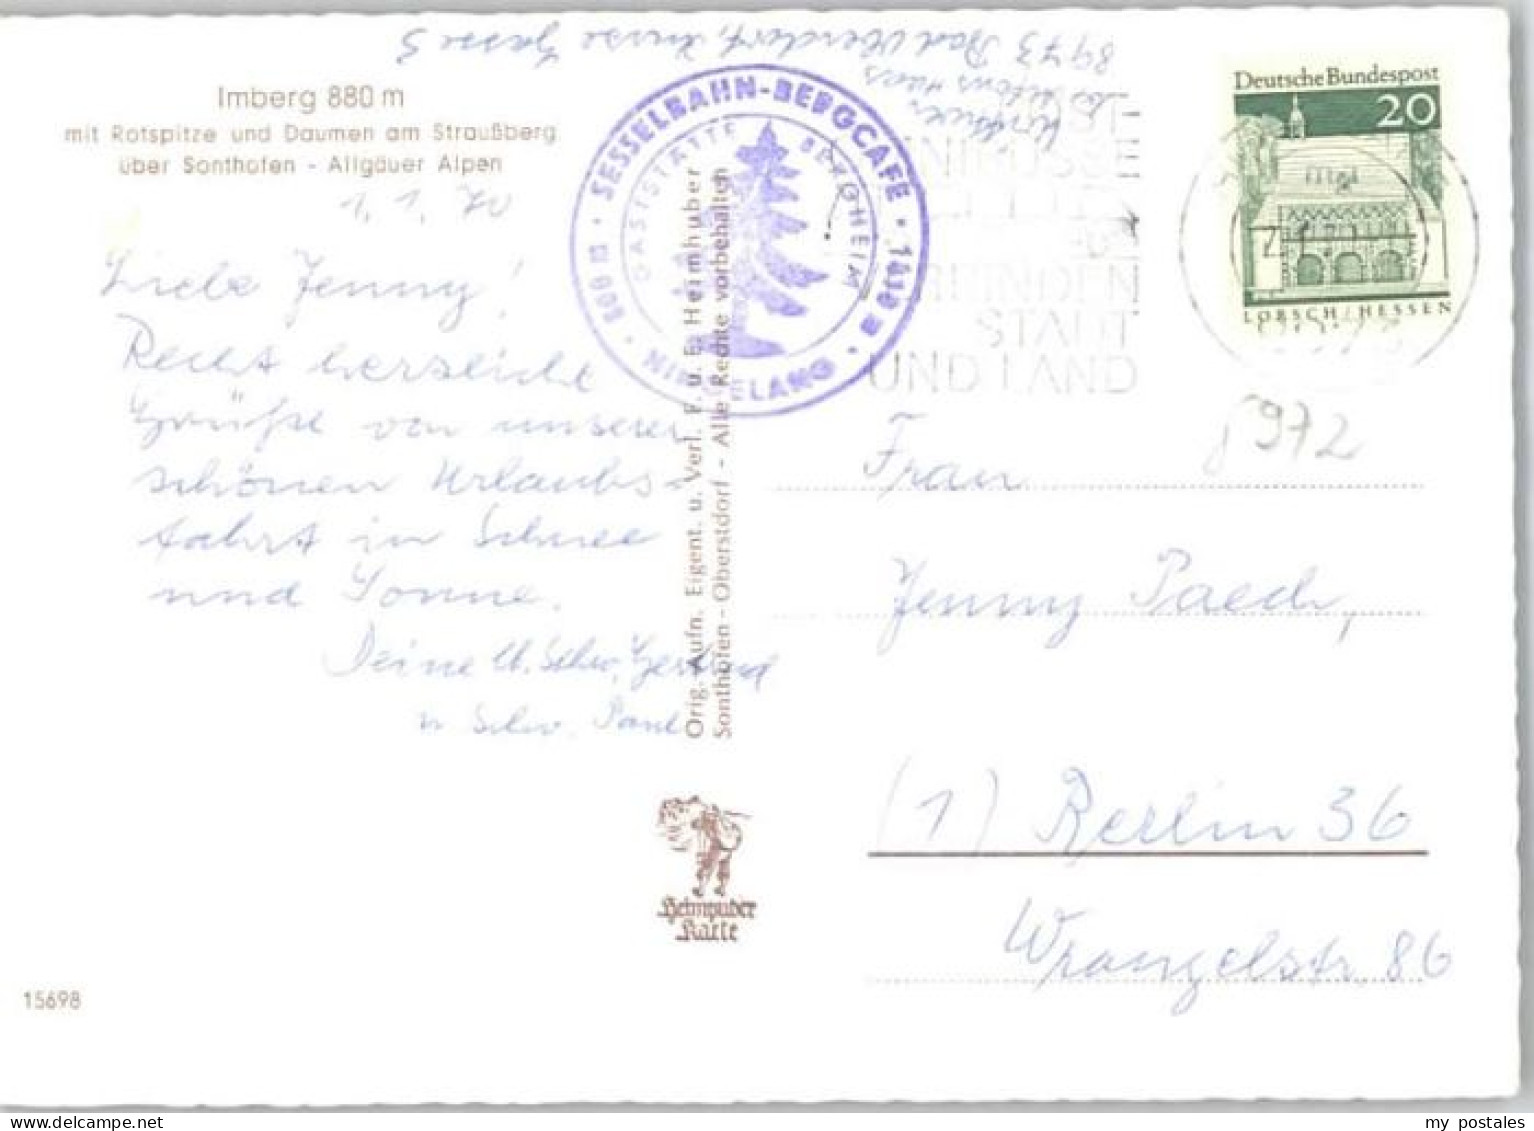 Imberg 880 m
mit Rotspitze und Daumen am Straußberg
über Sonthofen - Allgäuer Alpen
1. 1. 70
Liebe Jenny!
Recht herzliche
Grüße von unserer
schönen Urlaubs-
fahrt in Schnee
und Sonne.
Deine Schw. Gertrud
u. Schw. Paul
8973 Bad Oberdorf, Gasse 5
SESSELBAHN-BERGCAFE
GASTSTÄTTE BERGHEIM
HINDELANG
Orig.-Aufn. Eigent. u. Verl. F. u. E. Heimhuber
Sonthofen - Oberstdorf - Alle Rechte vorbehalten
Heimhuber
Karte
15698
STADT
UND LAND
Deutsche Bundespost
20
LORSCH/HESSEN
5972
Frau
Jenny Paech,
(1) Berlin 36
Wrangelstr. 86
my postales